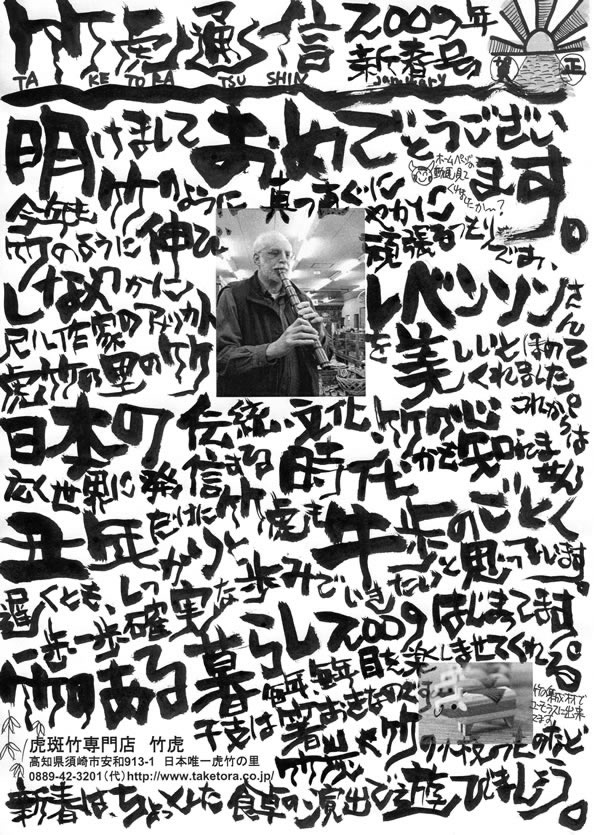 竹虎通信
TA KE TORA TSU SHIN
2009年
新春号
January
賀正
明けまして おめでとうござい
ます。
ホームページの
動画見て
くれましたかー?
今年も 竹のように 真っすぐに
竹のように 伸び やかに
しなやかに 頑張るつもりです。
尺八作家のアメリカ人 レベンソンさん
虎竹の里の竹を 美しいとほめて
くれました
これからは
日本の 伝統、文化、竹の心
広く世界に発信する時代かも知れません
丑年だけに竹虎も牛歩のごとく
遅くとも、しっかり確実な
一歩一歩 歩みでいきたいと思っています。
竹のある暮らし 2009 はじまってます。
毎年、毎年 目を楽しませてくれる
干支は箸おきなのです
竹の集成材で
ユーモラスに出来
てます
竹ざるや竹の小枝の上のなど
新春は、ちょっとした 食卓の演出で遊びましょう。
虎斑竹専門店 竹虎
高知県須崎市安和913-1 日本唯一虎竹の里
0889-42-3201(代)http://www.taketora.co.jp/